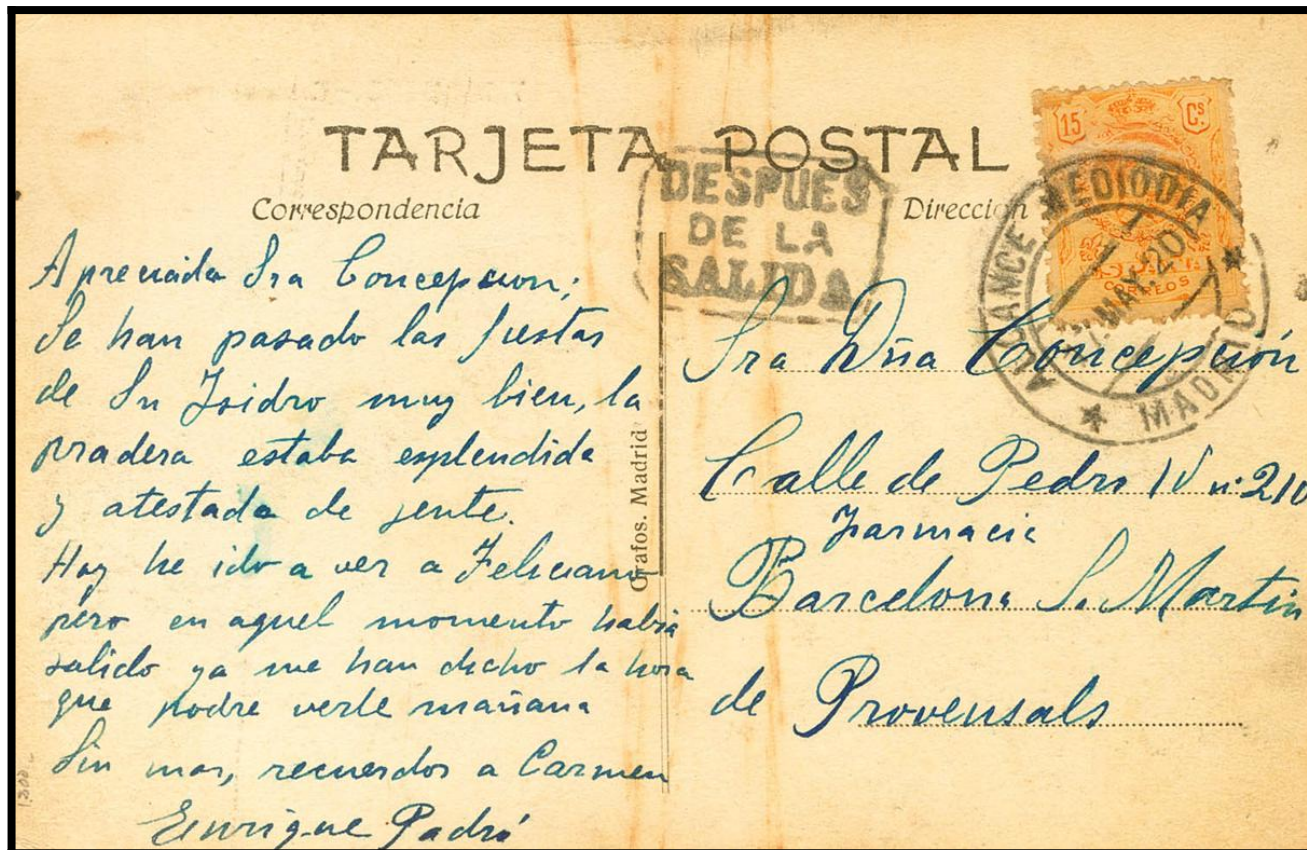 TARJETA POSTAL
Correspondencia
Dirección
DESPUES
DE LA
SALIDA
15 Cs
CORREOS
ALCANCE MEDIODIA
MAY. 20
* MADRID *
Apreciada Sra Concepcion;
Se han pasado las fiestas
de Sn Isidro muy bien, la
pradera estaba esplendida
y atestada de gente.
Hoy he ido a ver a Feliciano
pero en aquel momento habia
salido ya me han dicho la hora
que podre verle mañana
Sin mas, recuerdos a Carmen
Enrique Padró
Grafos. Madrid
Sra Dña Concepción
Calle de Pedro IV nº 210
Farmacia
Barcelona S. Martin
de Provensals
1.300